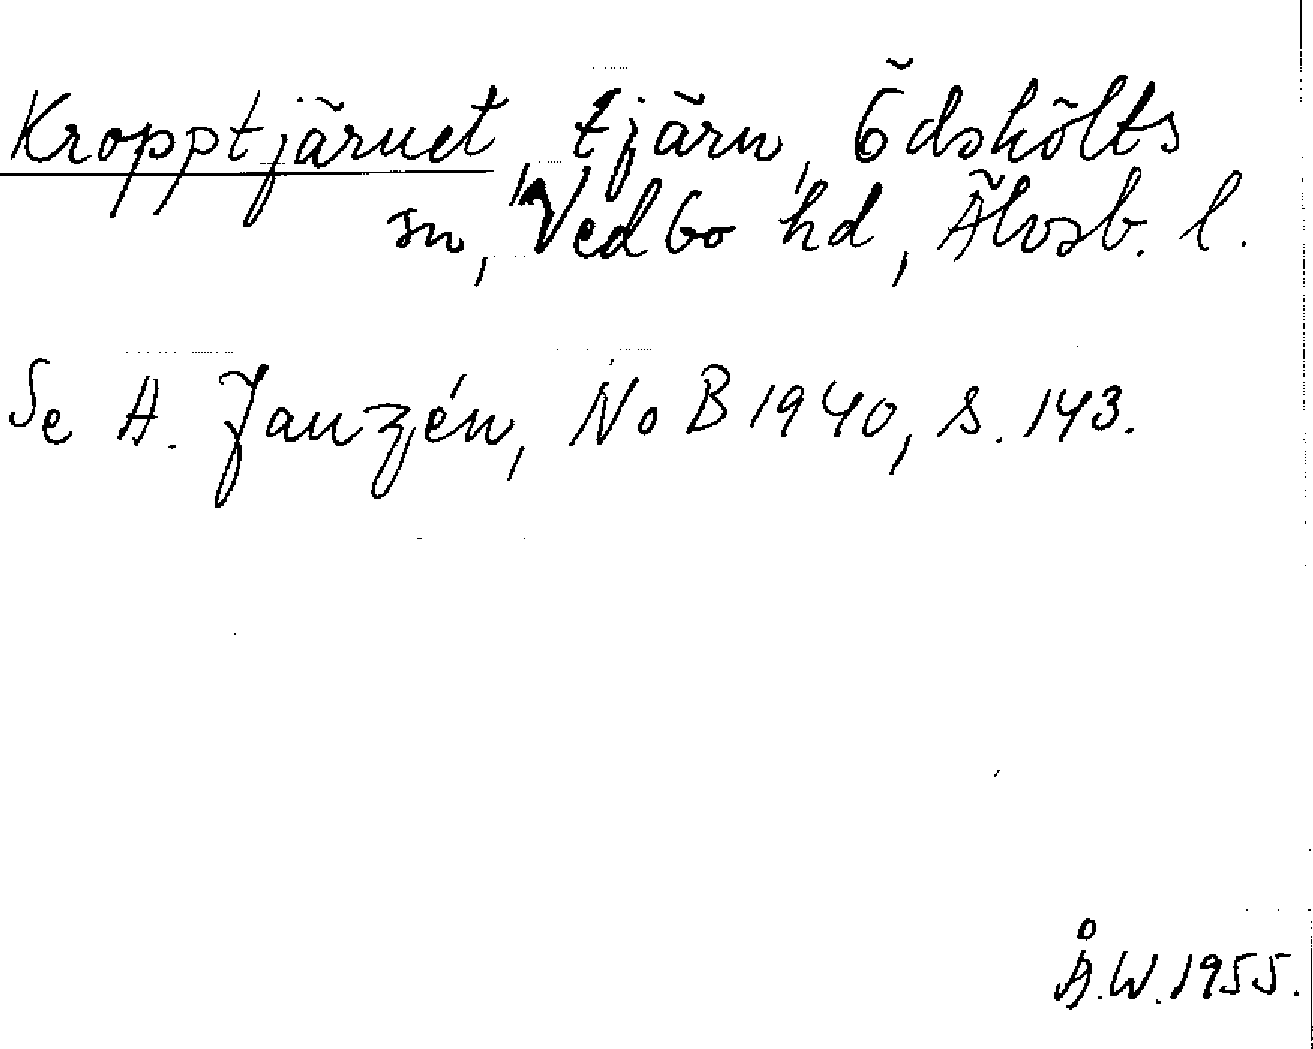 Kropptjärnet, tjärn, Ödskölts
sn, Vedbo hd, Älvsb. l.
Se A. Janzén, NoB 1940, s. 143.
Å.W. 1955.